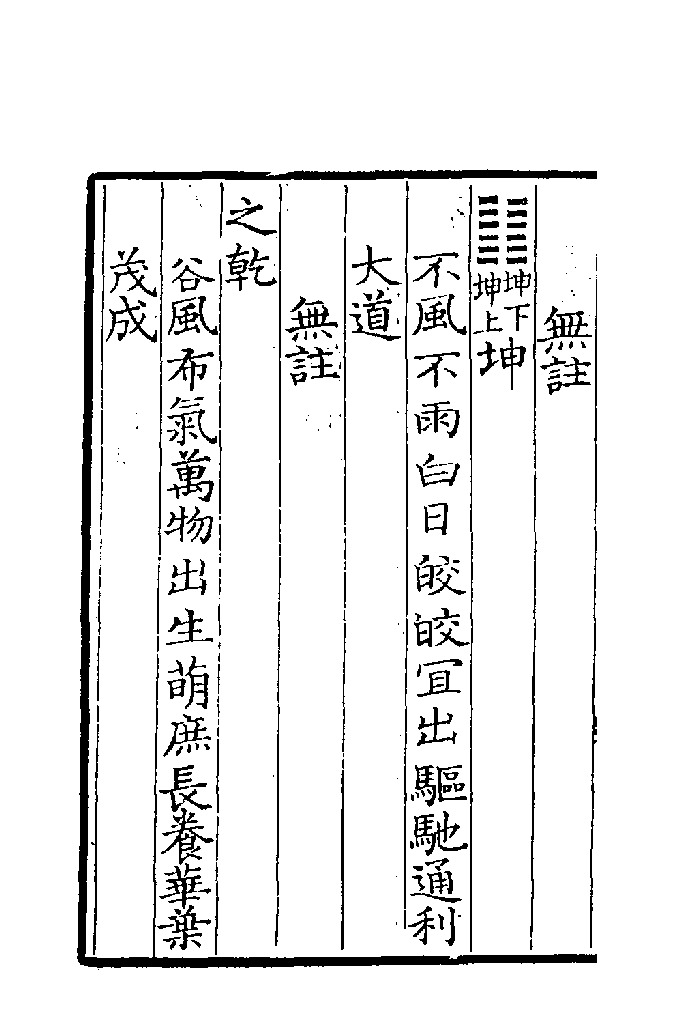 無註
䷁坤下坤上坤
不風不雨白日皎皎冝出驅馳通利
大道
無註
之乾
谷風布氣萬物出生萌庶長養華葉
茂成